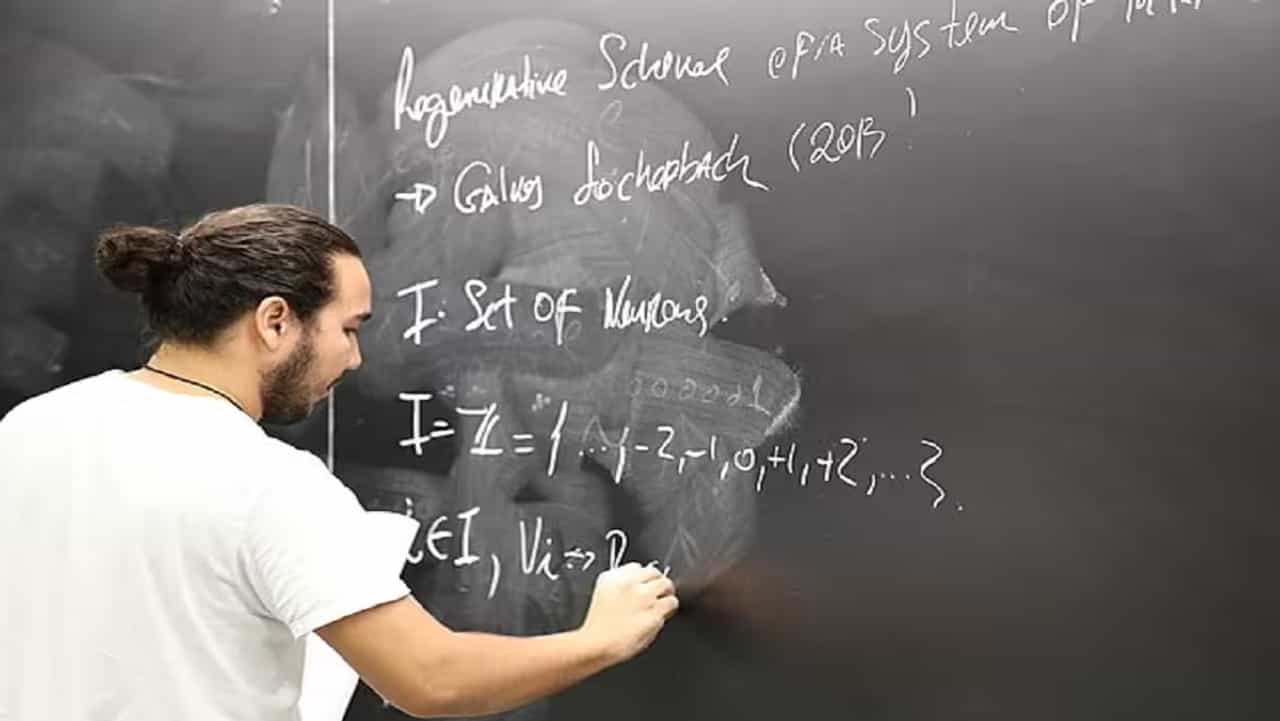 Regenerative Scheme of/a system of
→ Galves Löcherbach (2013)
I: Set of Neurons.
I = ℤ = {..., -2, -1, 0, +1, +2, ...}.
i ∈ I, Vi →